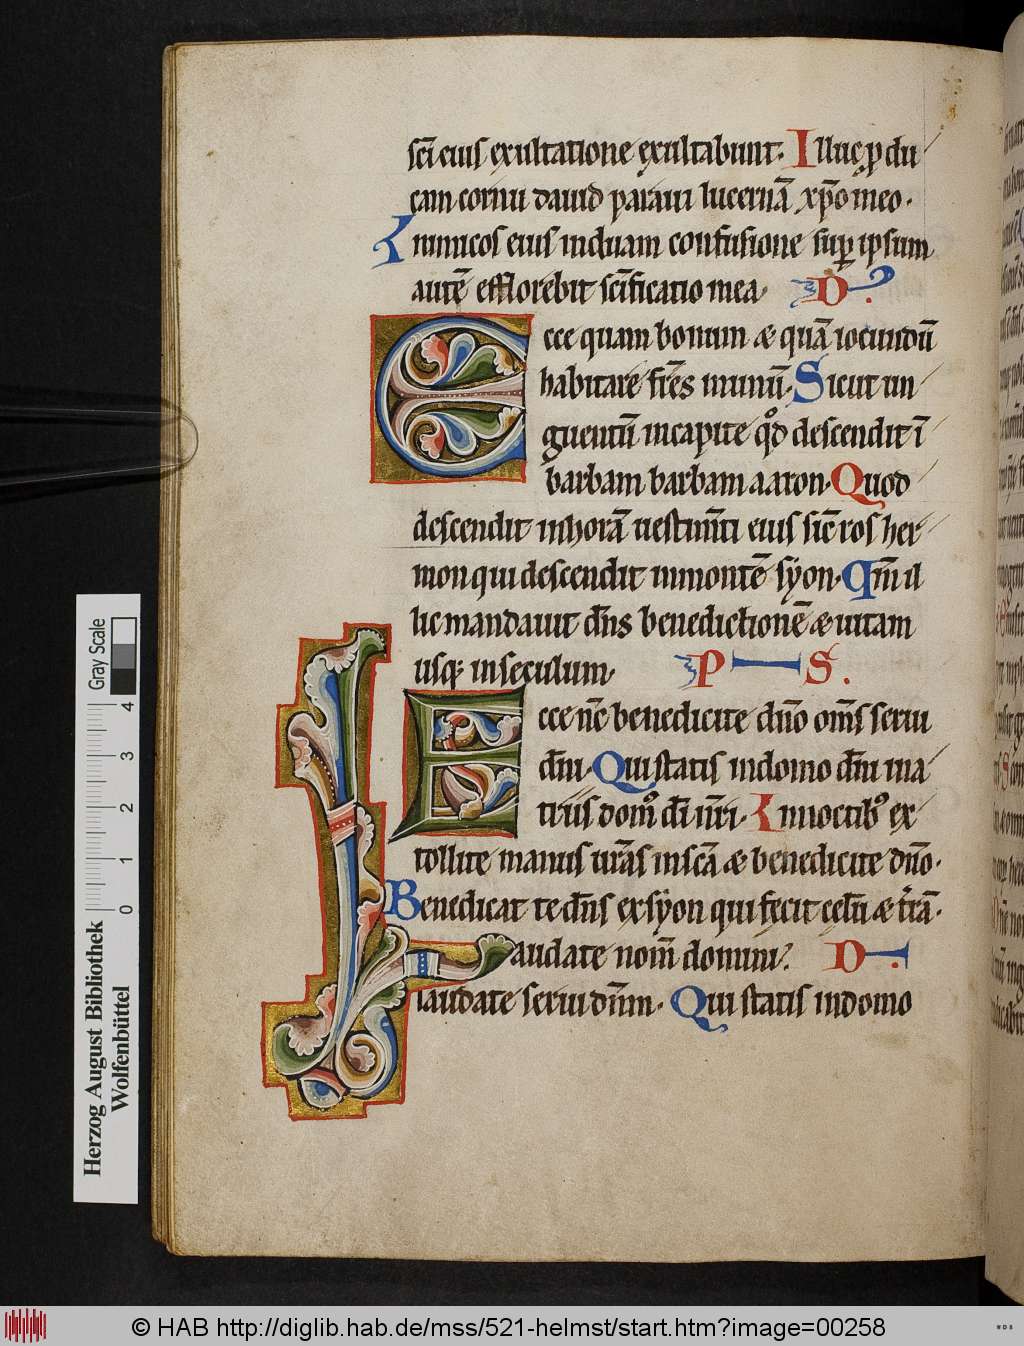 sci eius exultatione exultabunt. Illuc, pdu
cam cornu dauid paraui lucernā xp̄o meo.
Inimicos eius induam confusione sup̱ ipsum
autē efflorebit sc̄ificatio mea. D.
Ecce quam bonum & quā iocundū
habitare fr̄es inunū. Sicut un
guentū incapite qd̊ descendit ī
barbam barbam aaron. Quod
descendit inhorā uestim̄ti eius sic̄ ros her
mon qui descendit inmontē syon. Qm̄ il
lic mandauit dn̄s benedictionē & uitam
usq; in seculum. PS.
Ecce nc̄ benedicite dn̄o om̄s serui
dn̄i. Qui statis indomo dn̄i in a
triis dom᷒ di n̄ri. Innoctib᷒ ex
tollite manus ur̄as insc̄a & benedicite dn̄o.
Benedicat te dn̄s exsyon qui fecit celū & t̄rā.
Laudate nom̄ domini. D.
laudate serui dn̄m. Qui statis indomo
Gray Scale
0 1 2 3 4
Herzog August Bibliothek
Wolfenbüttel
© HAB http://diglib.hab.de/mss/521-helmst/start.htm?image=00258